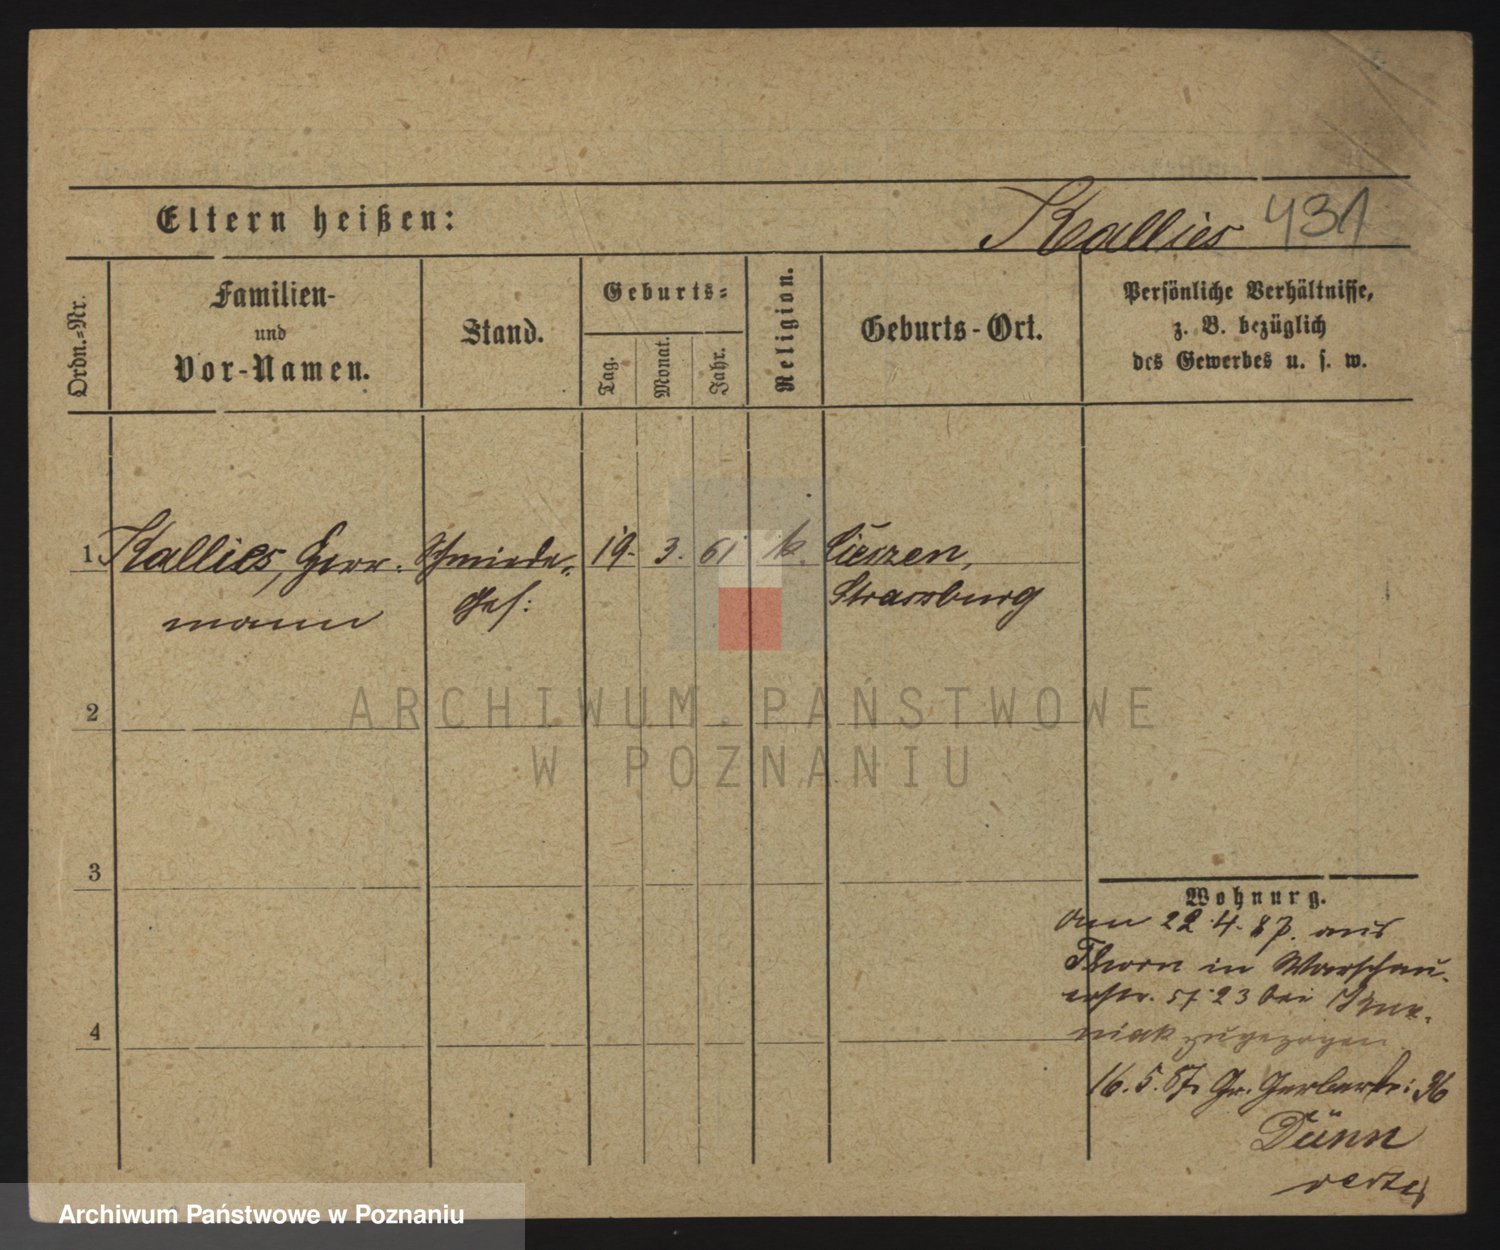 Eltern heißen:
Kallies 431
Ordn.=Nr.
Familien-
und
Vor-Namen.
Stand.
Geburts=
Tag.
Monat.
Jahr.
Religion.
Geburts-Ort.
Persönliche Verhältnisse,
z. B. bezüglich
des Gewerbes u. s. w.
1 Kallies, Herr- Schmiede- 19. 3. 61 k. Cieszen,
mann Ges: Strassburg
2
ARCHIWUM PAŃSTWOWE
W POZNANIU
3
Wohnung.
22.4.87. aus
Thorn in Warschau-
erstr. 23 bei
4
niak zugezogen
16.5.87. Gr. Gerberstr: 36
Dünn
Archiwum Państwowe w Poznaniu